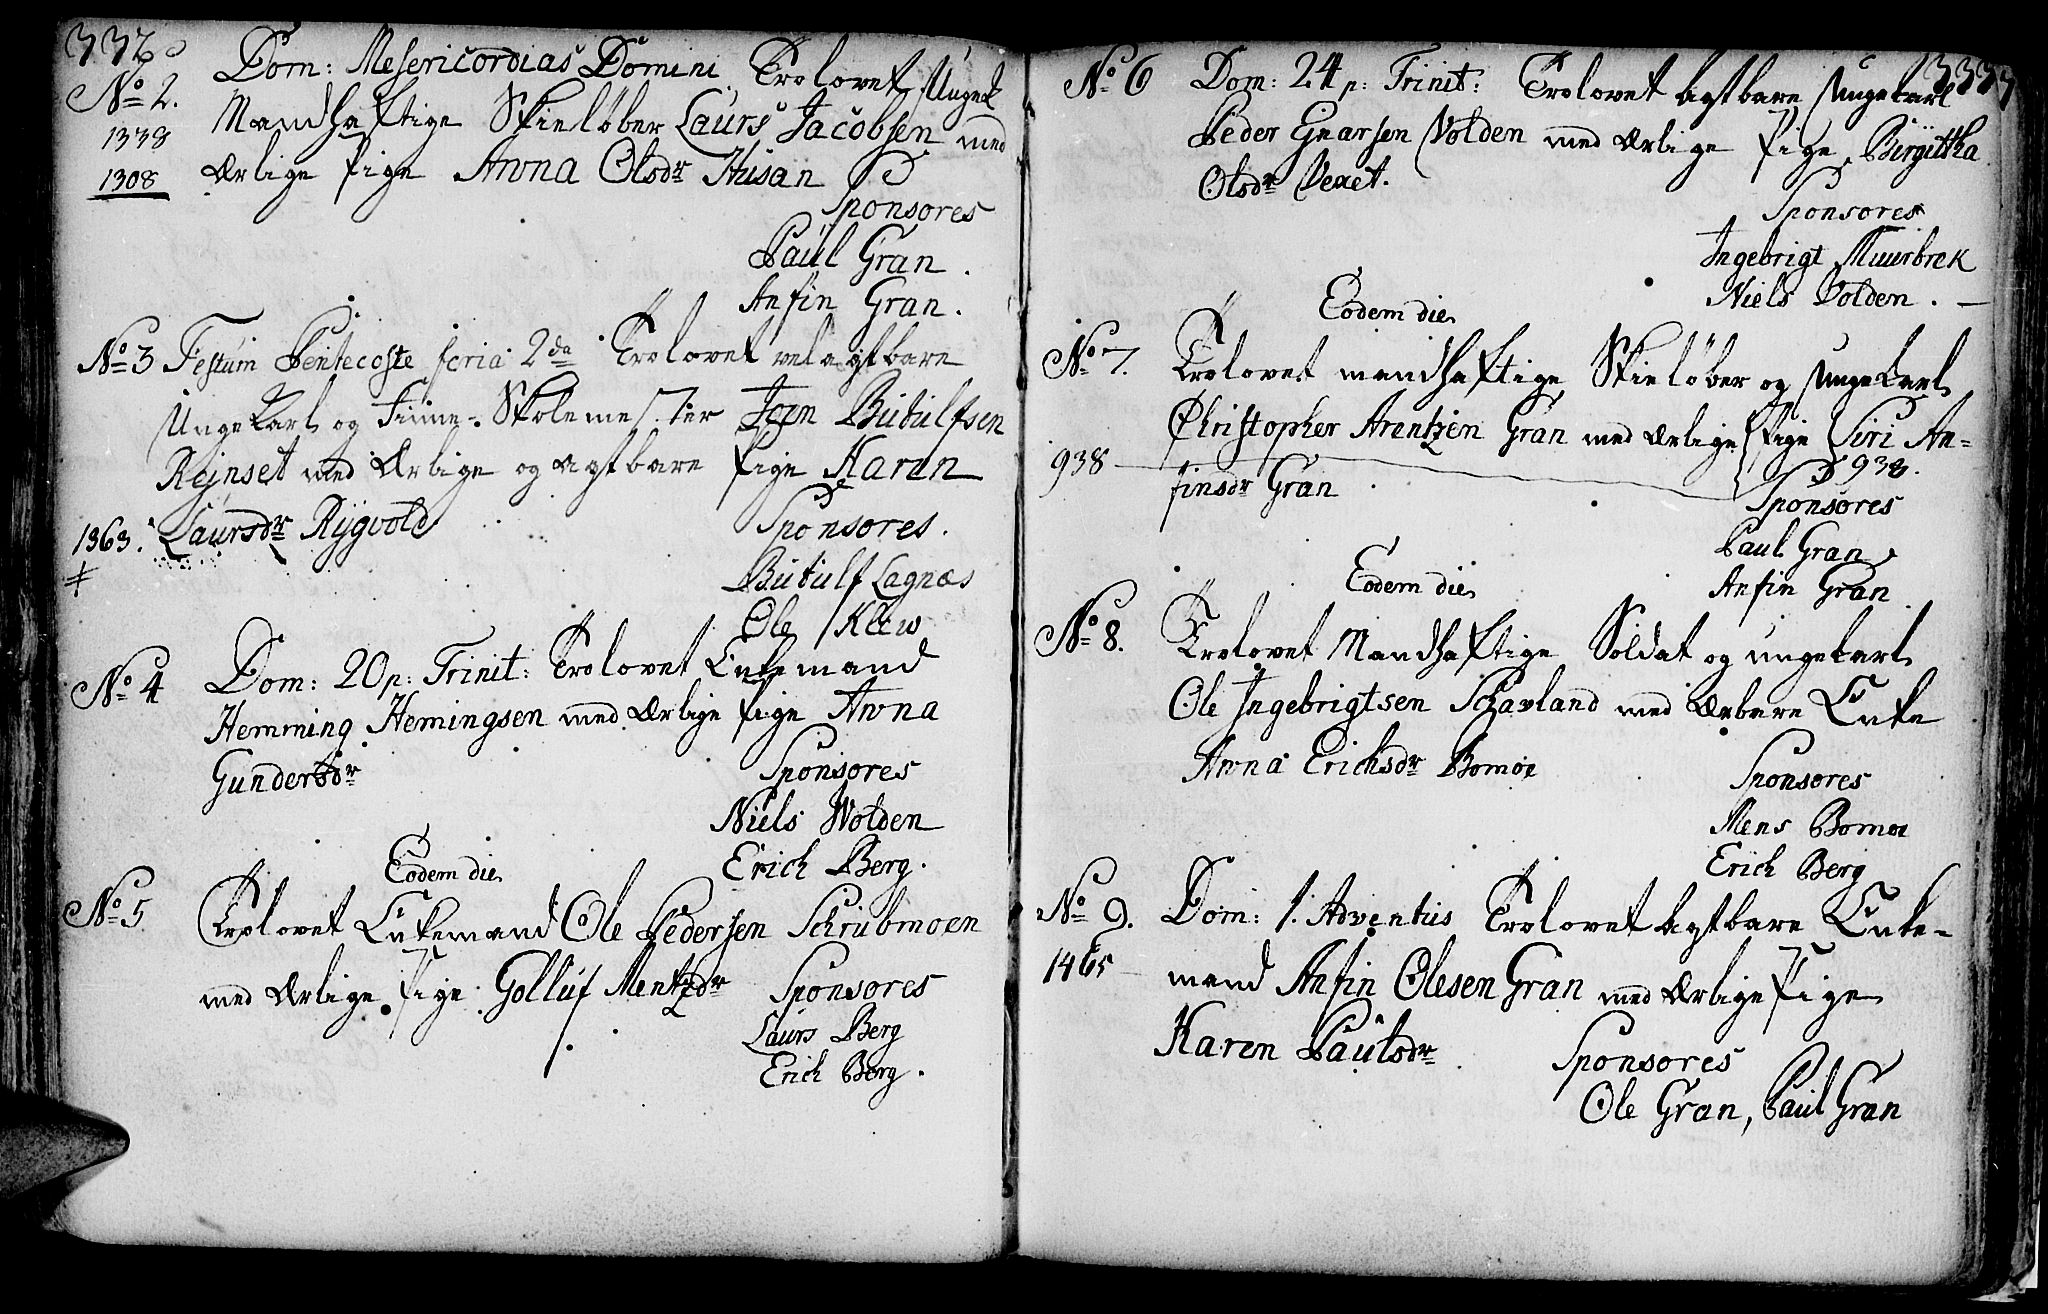 332
No 2. Dom: Mesericordias Domini Trolovet Unge
1338 Mandhaftige Skieløber Laurs Jacobsen med
1308 Ærlige Pige Anna Olsdr Husan
Sponsores
Paul Gran.
Anfin Gran.
No 3 Festum Pentecoste feria 2da Trolovet velagtbare
Ungekarl og Finne-Skolemester Joen Butulfsen
Rejnset med Ærlige og agtbare Pige Karen
1363. Laursdr Rygvold
Sponsores.
Butulf Lagnæs
Ole Klew
No 4 Dom: 20 p: Trinit: Trolovet Enkemand
Hemming Hemingsen med Ærlige Pige Anna
Gundersdr
Sponsores
Niels Wolden
Erich Berg.
Eodem die
No 5. Trolovet Enkemand Ole Pedersen Schrubmoen
med Ærlige Pige Golluf Mentzdr
Sponsores
Laurs Berg
Erich Berg.
333
No 6 Dom: 24 p: Trinit: Trolovet agtbare Ungekarl
Peder Enarsen Volden med Ærlige Pige Birgittha
Olsdr Veret.
Sponsores
Ingebrigt Muurbrek
Niels Volden.
Eodem die
No 7. Trolovet mandhaftige Skieløber og Ungekarl
Christopher Arentzen Gran med Ærlige Pige Siri An-
938 finsdr Gran
938.
Sponsores
Paul Gran
Anfin Gran
Eodem die
No 8. Trolovet Mandhaftige Soldat og ungekarl
Ole Ingebrigtsen Schavland med Ærbare Enke
Anna Erichsdr Bomoe
Sponsores
Mens Bomoe
Erich Berg
No 9. Dom: 1. Adventus Trolovet agtbare Enke-
1465 mand Anfin Olesen Gran med Ærlige Pige
Karen Paulsdr
Sponsores
Ole Gran, Paul Gran